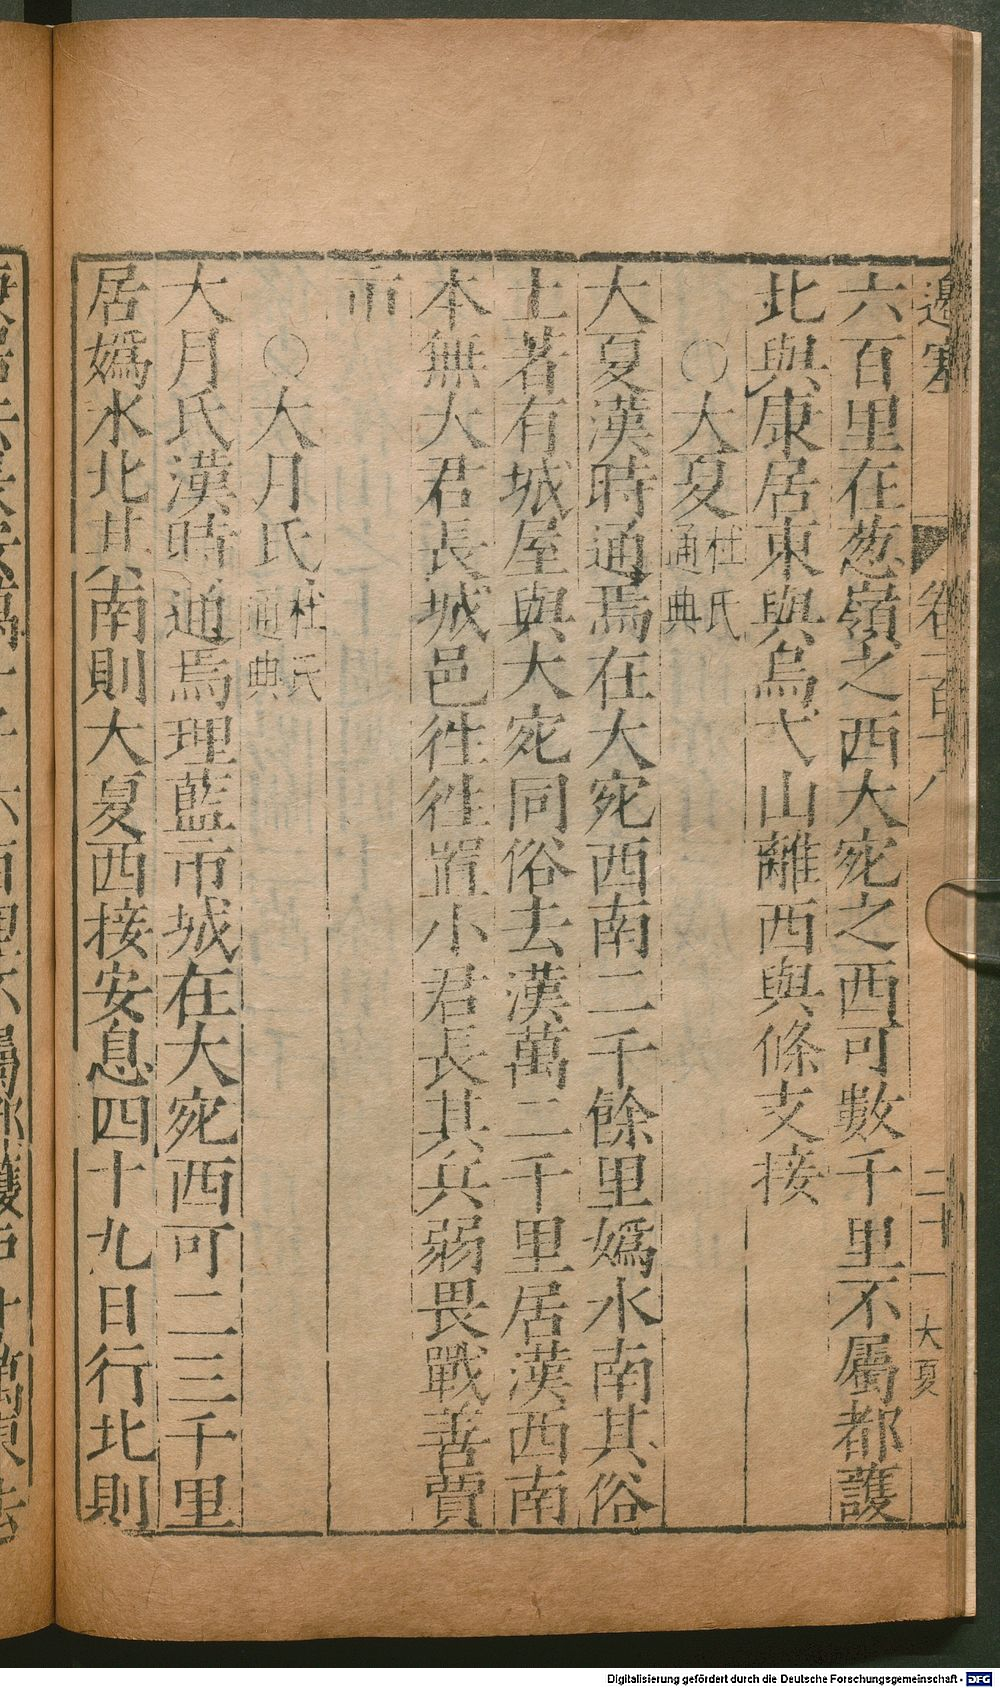 邊塞 卷一百十八 二十一 大夏
六百里在葱嶺之西大宛之西可數千里不屬都護
北與康居東與烏弋山離西與條支接
○大夏杜氏通典
大夏漢時通焉在大宛西南二千餘里嬀水南其俗
土著有城屋與大宛同俗去漢萬二千里居漢西南
本無大君長城邑徃徃置小君長其兵弱畏戰善賈
市
○大月氏杜氏通典
大月氏漢時通焉理藍市城在大宛西可二三千里
居嬀水北其南則大夏西接安息四十九日行北則
Digitalisierung gefördert durch die Deutsche Forschungsgemeinschaft - DFG